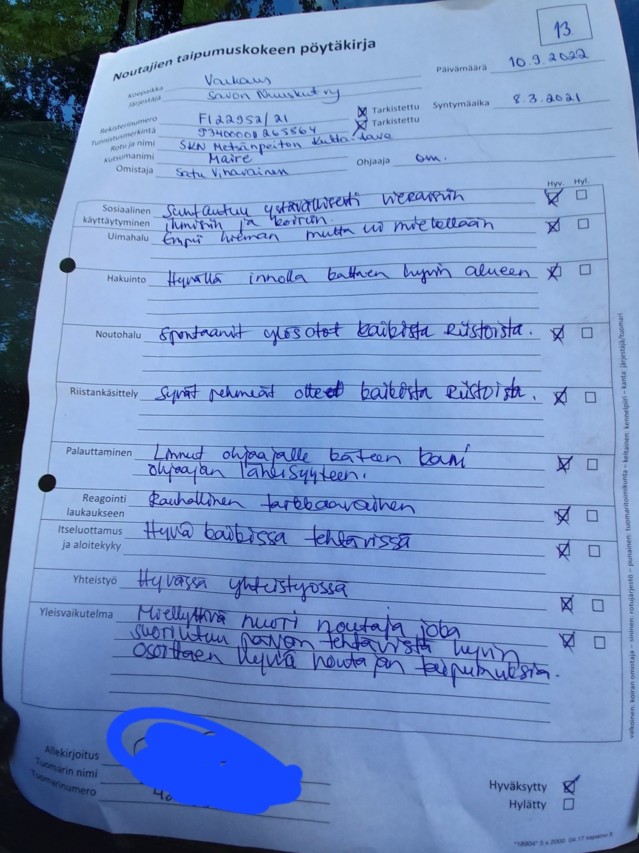 13.
Noutajien taipumuskokeen pöytäkirja
Koepaikka Varkaus Päivämäärä 10.9.2022
Järjestäjä Savon Nuuskut ry
Rekisterinumero FI22952/21 Tarkistettu Syntymäaika 8.3.2021
Tunnistusmerkintä Tarkistettu
Rotu ja nimi SKN Metsänpeiton Kulta-tave
Kutsumanimi Maire Ohjaaja om.
Omistaja Satu Vihavainen
Hyv. Hyl.
Sosiaalinen Suhtautuu ystävällisesti vieraisiin
käyttäytyminen ihmisiin ja koiriin.
Uimahalu Empii hieman mutta ui mielellään
Hakuinto Hyvällä innolla kattaen hyvin alueen
Noutohalu Spontaanit ylösotot kaikista riistoista.
Riistankäsittely Syvät pehmeät otteet kaikista riistoista.
Palauttaminen Linnut ohjaajalle käteen kani
ohjaajan läheisyyteen.
Reagointi Rauhallinen tarkkaavainen
laukaukseen
Itseluottamus Hyvä kaikissa tehtävissä
ja aloitekyky
Yhteistyö Hyvässä yhteistyössä
Yleisvaikutelma Miellyttävä nuori noutaja joka
suoriutuu päivän tehtävistä hyvin
osoittaen hyviä noutajan taipumuksia.
Allekirjoitus
Tuomarin nimi
Tuomarinumero
Hyväksytty
Hylätty
valkoinen: koiran omistaja – sininen: rotujärjestö – punainen: tuomaritoimikunta – keltainen: kennelpiiri – kanta: järjestäjä/tuomari